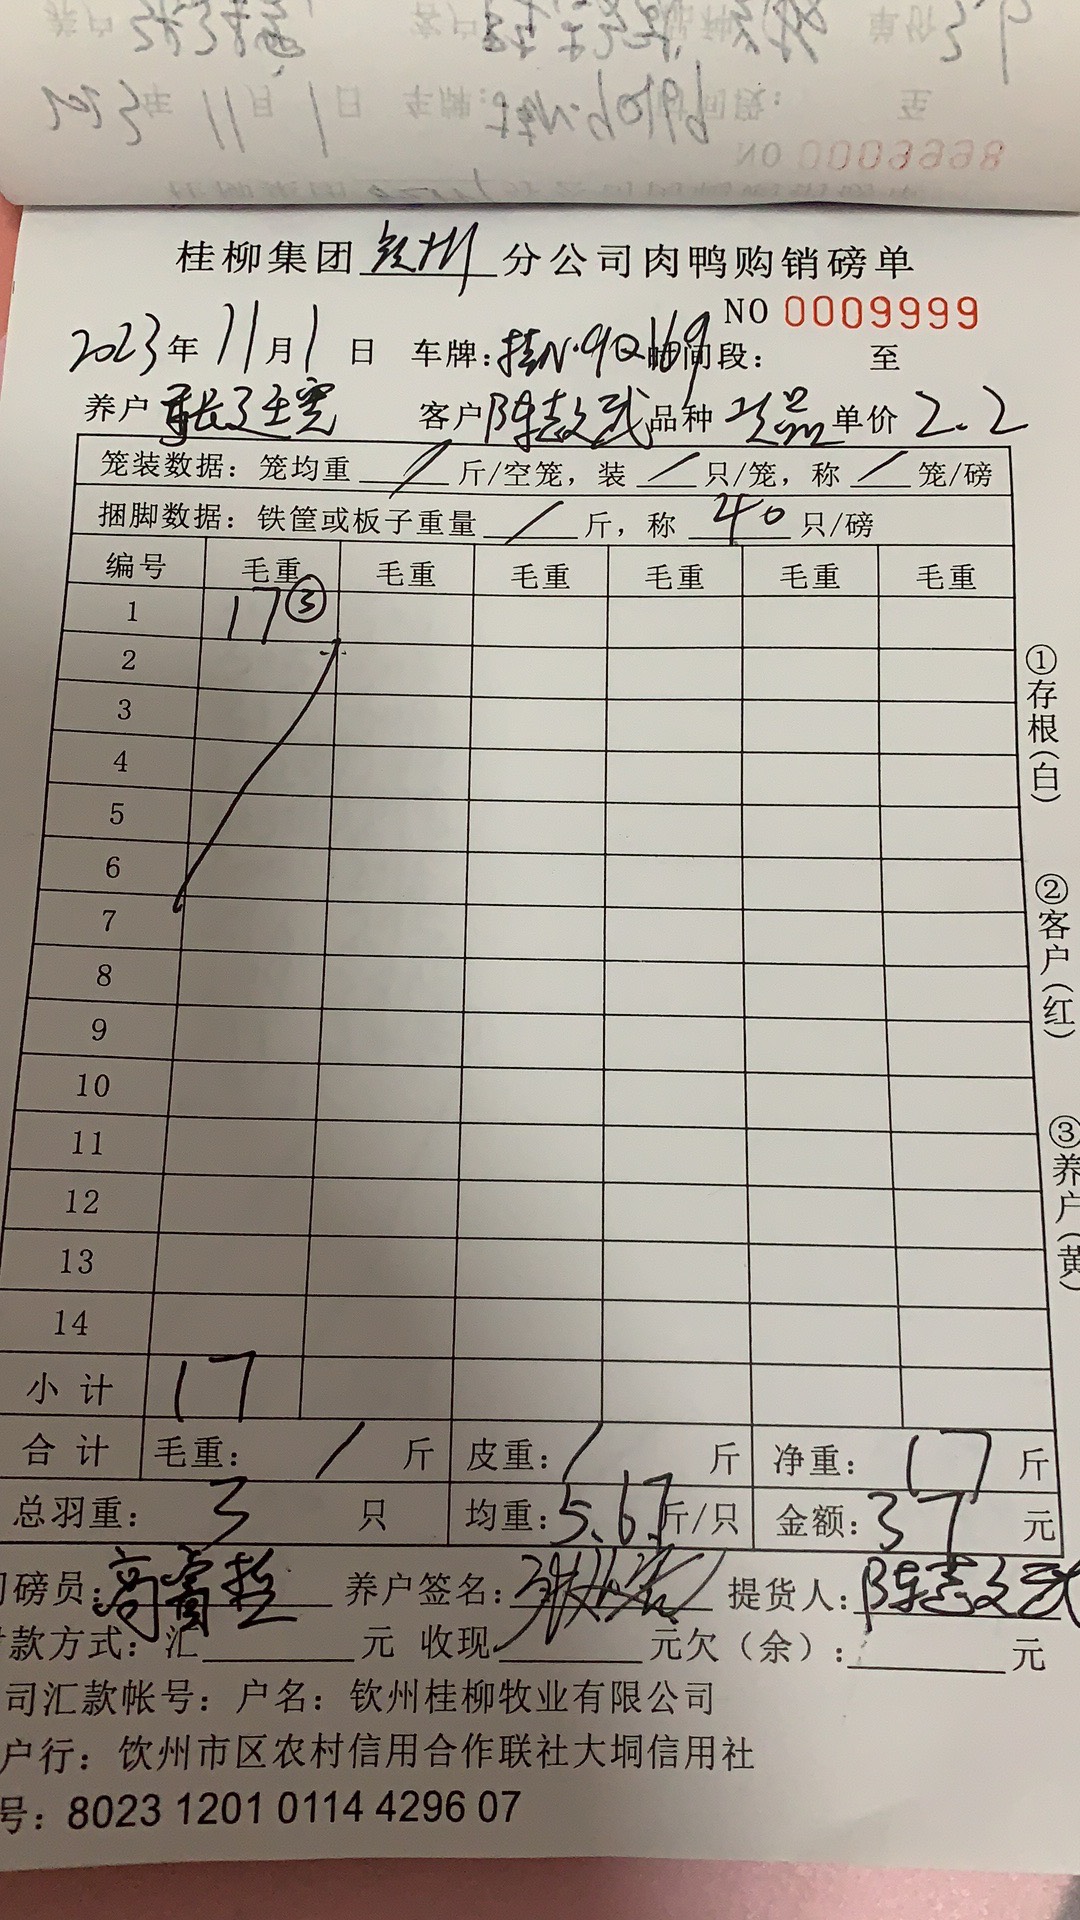 桂柳集团 钦州 分公司肉鸭购销磅单
NO 0009999
2023年 11月 1日 车牌:桂N·9Q169 时间段: 至
养户 客户 陈志武 品种 次品 单价 2.2
笼装数据：笼均重 / 斤/空笼，装 / 只/笼，称 / 笼/磅
捆脚数据：铁筐或板子重量 / 斤，称 40 只/磅
编号 毛重 毛重 毛重 毛重 毛重 毛重
1 17 ③
2
3
4
5
6
7
8
9
10
11
12
13
14
小计 17
合计 毛重: / 斤 皮重: / 斤 净重: 17 斤
总羽重: 3 只 均重: 5.67 斤/只 金额: 37 元
磅员: 养户签名: 提货人: 陈志武
款方式：汇 元 收现 元欠（余）: 元
司汇款帐号：户名：钦州桂柳牧业有限公司
户行：钦州市区农村信用合作联社大垌信用社
号：8023 1201 0114 4296 07
①存根(白)
②客户(红)
③养户(黄
NO 0009998
2023年 11月 1日 车牌: 时间段: 至
养户 客户 品种 单价